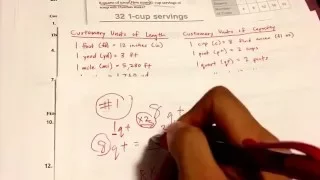 32 1-cup servings
Customary Units of Length
1 foot (ft) = 12 inches (in)
1 yard (yd) = 3 ft
1 mile (mi) = 5,280 ft
Customary Units of Capacity
1 cup (c) = 8 fluid ounces (fl oz)
1 pint (pt) = 2 cups
1 quart (qt) = 2 pints
#1
8 qt
1qt
x2
8 qt =
12.